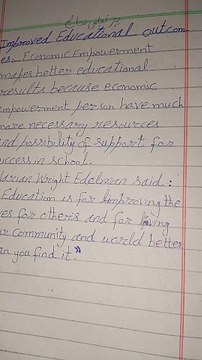 Improved Educational outcom
es. Economic Empowerment
makes better educational
results because economic
empowerment person have much
more necessary resources
and possibility of support for
success in school.
Marian Wright Edelman said :
Education is for improving the
ves for others and for
ur community and world better
n you find it."